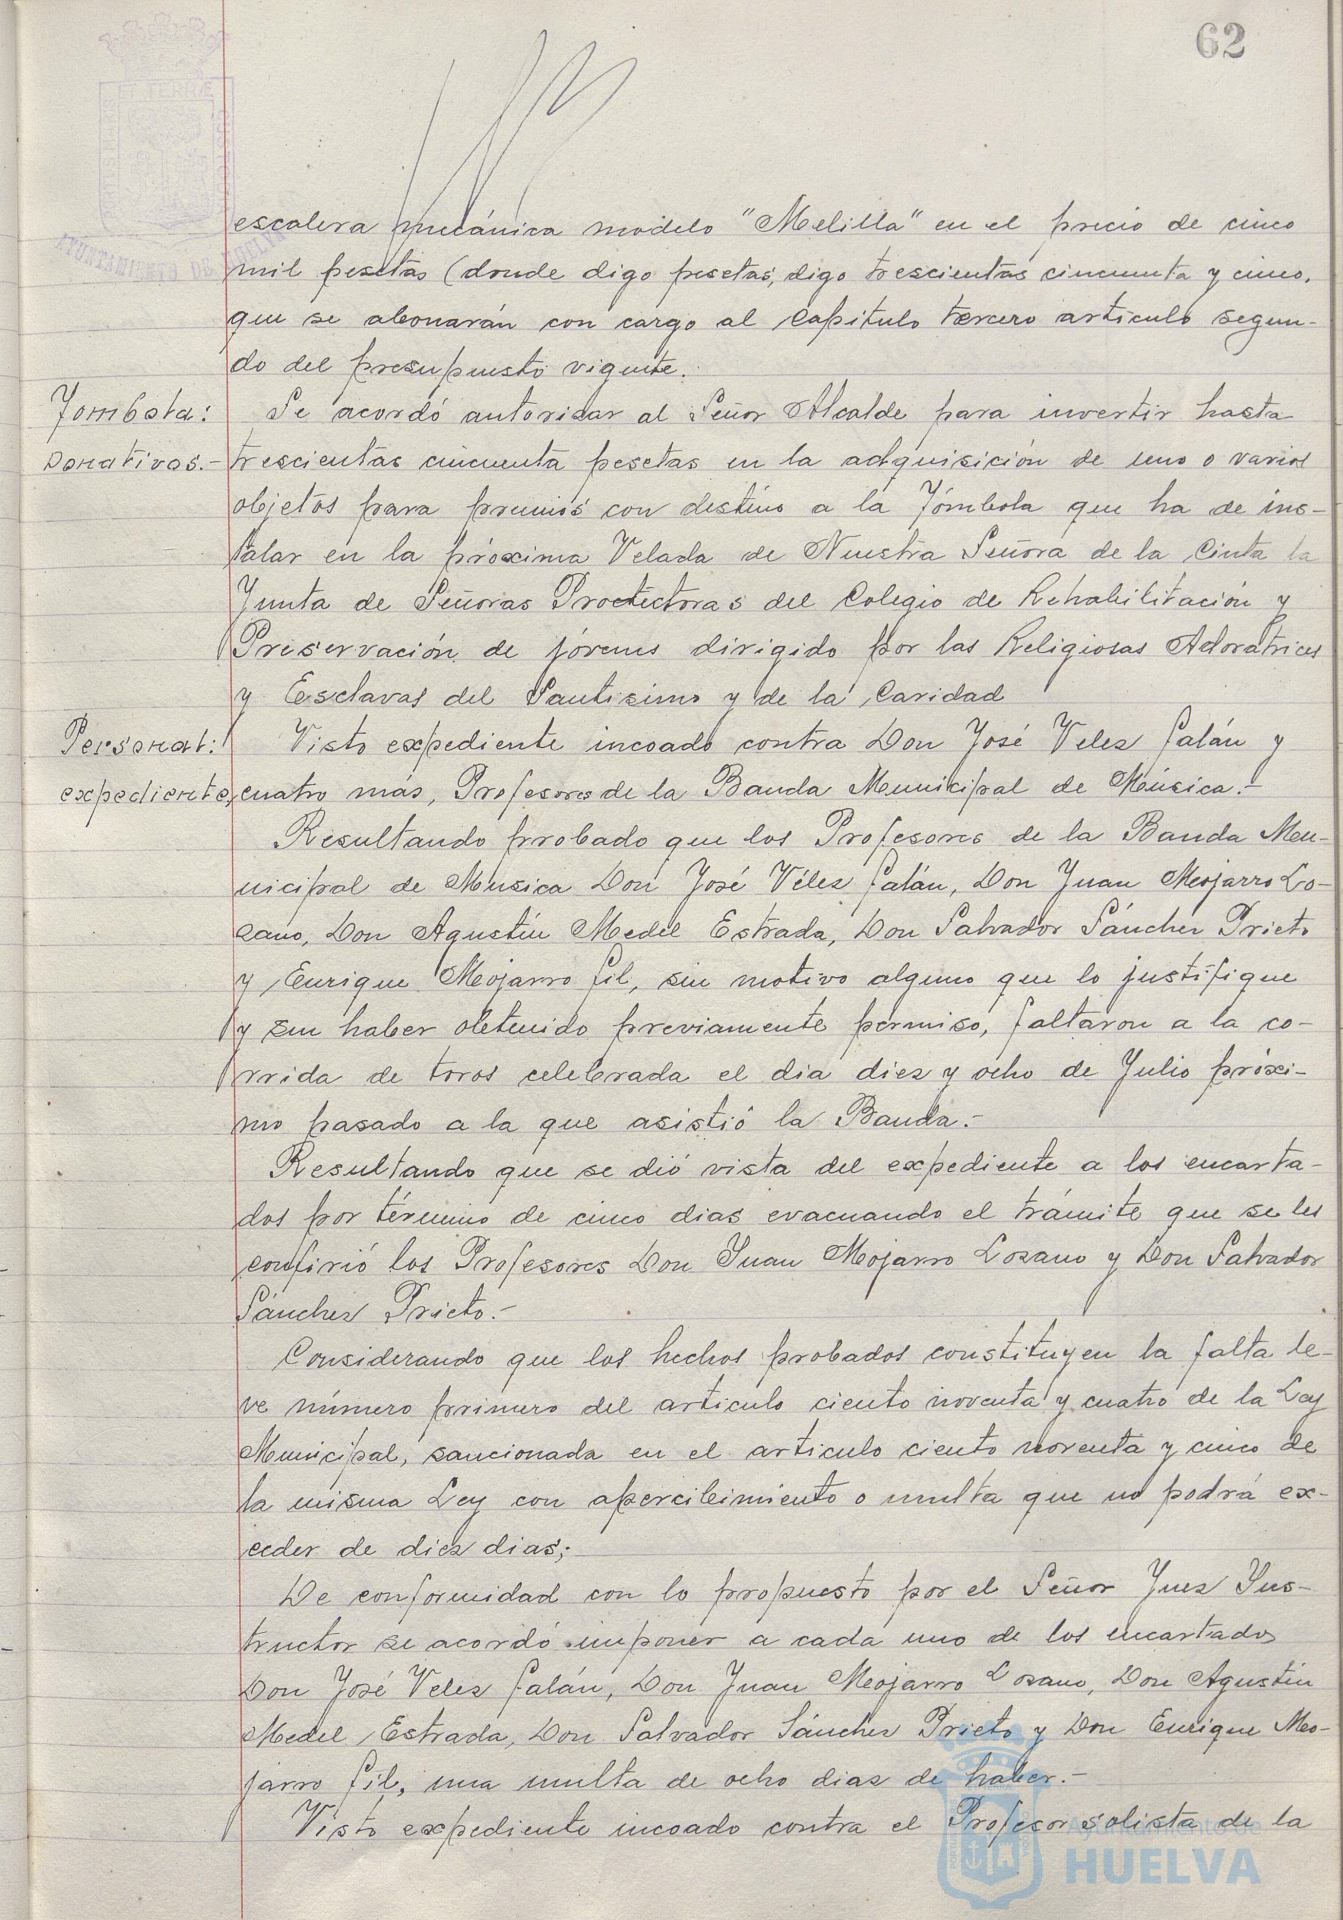 62
escalera mecánica modelo "Melilla" en el precio de cinco
mil pesetas (donde digo pesetas, digo trescientas cincuenta y cinco,
que se abonarán con cargo al Capitulo tercero articulo segun-
do del presupuesto vigente.
Tómbola:
Donativos.-
Se acordó autorizar al Señor Alcalde para invertir hasta
trescientas cincuenta pesetas en la adquisición de uno o varios
objetos para premios con destino a la Tómbola que ha de ins-
talar en la próxima Velada de Nuestra Señora de la Cinta la
Junta de Señoras Protectoras del Colegio de Rehabilitación y
Preservación de jóvenes dirigido por las Religiosas Adoratrices
y Esclavas del Santisimo y de la Caridad
Personal:
expediente,
Visto expediente incoado contra Don José Velez Galán y
cuatro más, Profesores de la Banda Municipal de Música.-
Resultando probado que los Profesores de la Banda Mu-
nicipal de Musica Don José Vélez Galán, Don Juan Mojarro Lo-
zano, Don Agustín Medel Estrada, Don Salvador Sánchez Prieto
y Enrique Mojarro Gil, sin motivo alguno que lo justifique
y sin haber obtenido previamente permiso, faltaron a la co-
rrida de toros celebrada el dia diez y ocho de Julio próxi-
mo pasado a la que asistió la Banda.-
Resultando que se dió vista del expediente a los encarta-
dos por término de cinco dias evacuando el trámite que se les
confirió los Profesores Don Juan Mojarro Lozano y Don Salvador
Sánchez Prieto.-
Considerando que los hechos probados constituyen la falta le-
ve número primero del articulo ciento noventa y cuatro de la Ley
Municipal, sancionada en el articulo ciento noventa y cinco de
la misma Ley con apercibimiento o multa que no podrá ex-
ceder de diez dias;-
De conformidad con lo propuesto por el Señor Juez Ins-
tructor se acordó imponer a cada uno de los encartados
Don José Velez Galán, Don Juan Mojarro Lozano, Don Agustín
Medel Estrada, Don Salvador Sánchez Prieto y Don Enrique Mo-
jarro Gil, una multa de ocho dias de haber.-
Visto expediente incoado contra el Profesor solista de la
AYUNTAMIENTO DE HUELVA
Ayuntamiento de
HUELVA